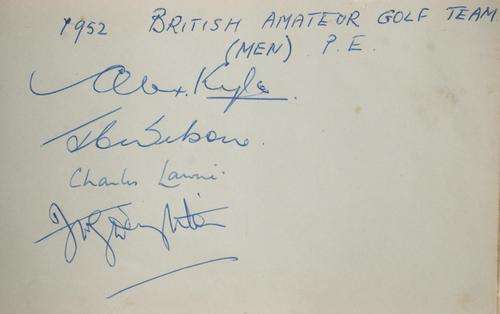 1952 BRITISH AMATEUR GOLF TEAM
(MEN) P.E.
Alex. Kyle
Charles Lawrie